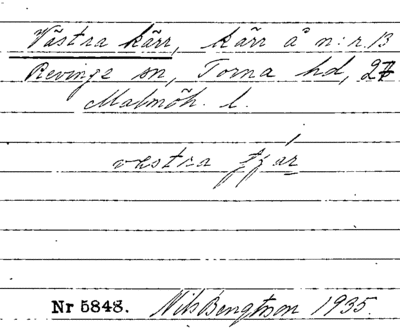 Västra kärr, kärr å n:r 13
Revinge sn, Torna hd,
Malmöh. l.
vestra
Nr 5848. Nils Bengtsson 1935.